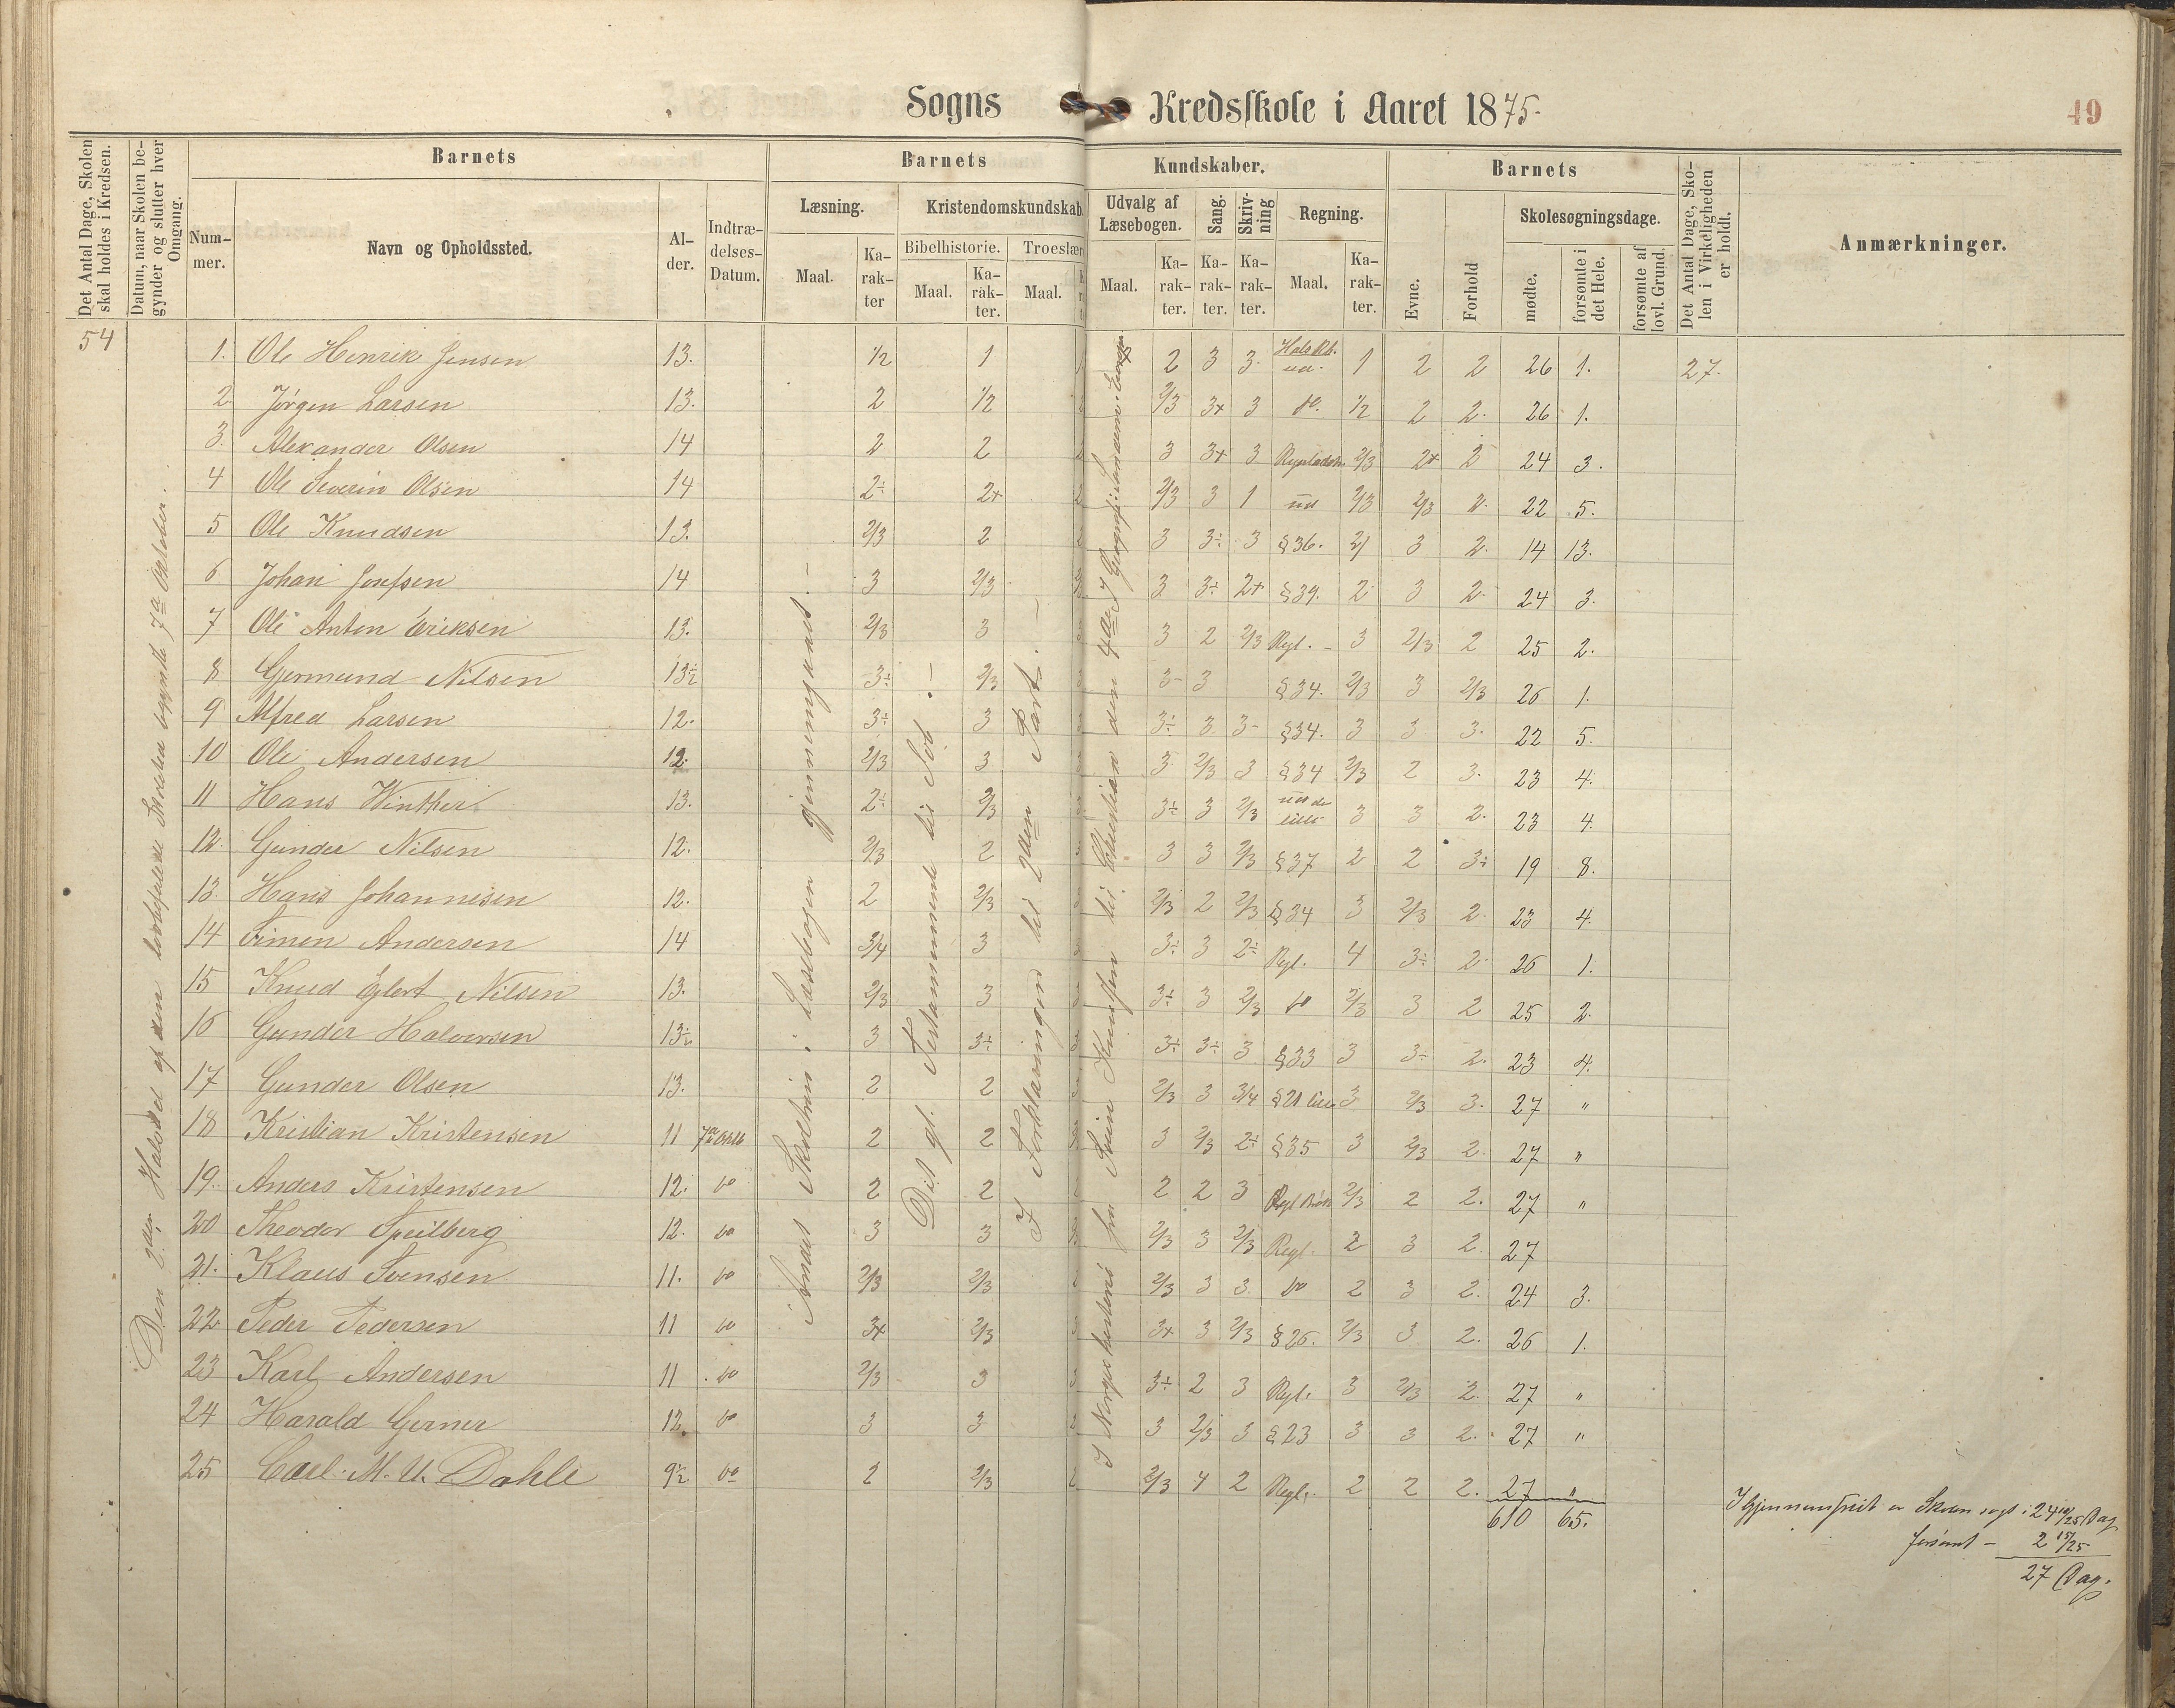 Sogns Kredsskole i Aaret 1875.
49
Det Antal Dage, Skolen skal holdes i Kredsen.
Datum, naar Skolen begynder og slutter hver Omgang.
Barnets
Nummer.
Navn og Opholdssted.
Alder.
Indtrædelses-Datum.
Barnets Kundskaber.
Læsning.
Maal.
Karakter
Kristendomskundskab.
Bibelhistorie.
Maal.
Karakter.
Troeslær
Maal.
Udvalg af Læsebogen.
Maal.
Karakter.
Sang.
Karakter.
Skrivning
Karakter.
Regning.
Maal.
Karakter.
Barnets
Evne.
Forhold
Skolesøgningsdage.
mødte.
forsømte i det Hele.
forsømte af lovl. Grund.
Det Antal Dage, Skolen i Virkeligheden er holdt.
Anmærkninger.
54
1. Ole Henrik Jensen 13. 1/2 1 2 3 3. ud. 1 2 2 26 1. 27.
2 Jørgen Larsen 13. 2 1/2 2/3 3+ 3 do. 1/2 2 2. 26 1.
3. Alexander Olsen 14 2 2 3 3+ 3 2/3 2+ 2 24 3.
4 Ole Severin Olsen 14 2÷ 2+ 2/3 3 1 ud 2/3 2/3 2. 22 5.
5 Ole Knudsen 13. 2/3 2 3 3÷ 3 §36. 3 2. 14 13.
6 Johan Josefsen 14 3 2/3 3 3÷ 2+ §39. 2 3 2 24 3.
7 Ole Anton Eriksen 13. 2/3 3 3 2 2/3 Regl. 3 2/3 2 25 2.
8 Gjermund Nilsen 13½ 3÷ 2/3 3- 3 §34. 2/3 3 2/3 26 1.
9 Alfred Larsen 12. 3÷ 3 3÷ 3 3- §34. 3 3 3. 22 5.
10 Ole Andersen 12. 2/3 3 3 2/3 3 §34 2/3 2 3. 23 4.
11 Hans Winther 13. 2÷ 2/3 3÷ 3 2/3 3 3 2. 23 4.
12. Gunder Nilsen 12. 2/3 2 3 3 2/3 §37 2 2 3÷ 19 8.
13. Hans Johannesen 12. 2 2/3 2/3 2 2/3 §34 3 2/3 2. 23 4.
14 Simen Andersen 14 3/4 3 3÷ 3 2÷ Regl. 4 3÷ 2. 26 1.
15 Knud Eglert Nilsen 13. 2/3 3 3÷ 3 2/3 do 2/3 3 2 25 2.
16 Gunder Halvorsen 13½ 3 3÷ 3÷ 3÷ 3 §33 3 3÷ 2. 23 4.
17 Gunder Olsen 13. 2 2 2/3 3 3/4 §21 lille 3 2/3 3. 27 "
18 Kristian Kristensen 11 7de Oktb 2 2 3 2/3 2÷ §35 3 2/3 2. 27 "
19. Anders Kristensen 12. do 2 2 2 2 3 2/3 2 2. 27 "
20 Theodor Speilberg 12. do 3 3 2/3 3 2/3 Regl. 2 3 2. 27
21. Klaus Svensen 11. do 2/3 2/3 2/3 3 3. do 2 3 2. 24 3.
22. Peder Pedersen 11 do 3+ 2/3 3+ 3 2/3 §26. 2/3 3 2. 26 1.
23 Karl Andersen 11 do 2/3 3 3÷ 2 3 Regl. 3 2/3 2. 27 "
24 Harald Gerner 12. do 3 3 3 2/3 3 §23 3 3 2. 27 "
25 Carl. M. U. Dahle 9½ do 2 2/3 2/3 4 2 Regl. 2 2 2. 27 "
610 65.
Den 2den Halvdel af den lovbefalede Skoletid begyndte 7de Oktober.
Andet Skoletrin i Læsebogen gjennemgaaet.
Det gl. Testamente til Job.
I Forklaringen til 2den Part.
I Norgeshistorie fra Svein Knutsøn til Christian den 4de I Geografi:
I Gjennemsnit er Skolen søgt: 24 10/25 Dag
forsømt - 2 15/25
27 Dag.